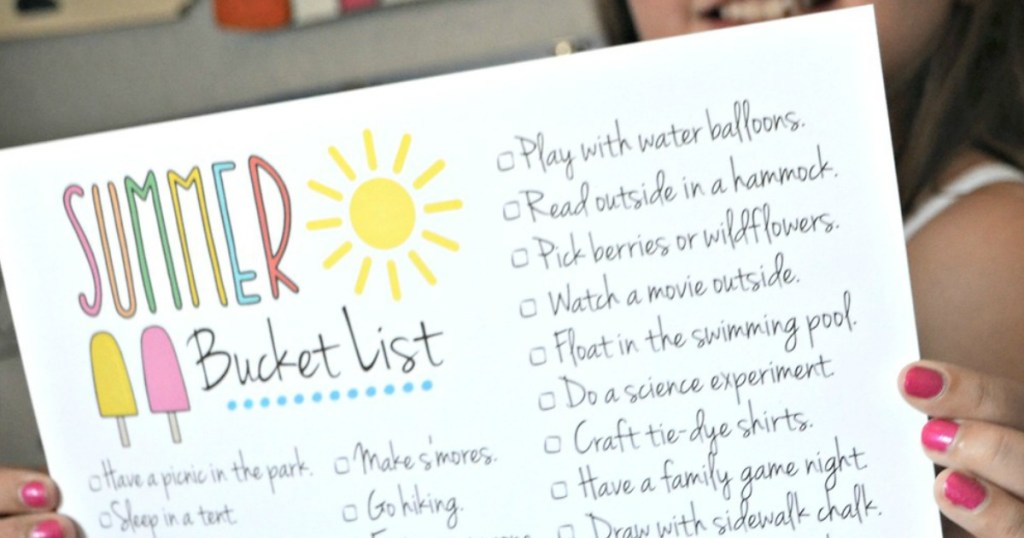 SUMMER
Bucket List
Have a picnic in the park.
Sleep in a tent
Make s'mores.
Go hiking.
Play with water balloons.
Read outside in a hammock.
Pick berries or wildflowers.
Watch a movie outside.
Float in the swimming pool.
Do a science experiment
Craft tie-dye shirts.
Have a family game night
Draw with sidewalk chalk.